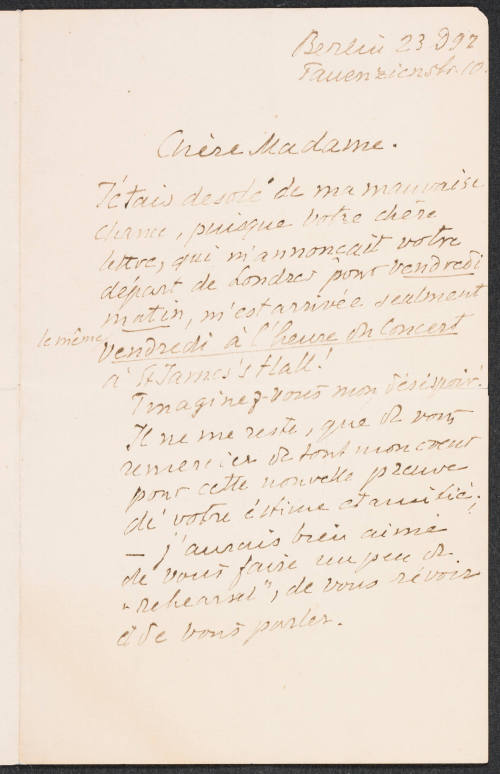 Berlin 23 D 92
Tauenzienstr. 10.
Chère Madame.
J'étais desolé de ma mauvaise
chance, puisque votre chère
lettre, qui m'annonçait votre
départ de Londres pour vendredi
matin, m'est arrivée seulment
le même vendredi à l'heure du Concert
à St James's Hall!
Imaginez-vous mon désespoir!
Il ne me reste, que de vous
remercier de tout mon coeur
pour cette nouvelle preuve
de votre éstime et amitié;
– j'aurais bien aimé
de vous faire un peu de
"rehearsel", de vous révoir
et de vous parler.